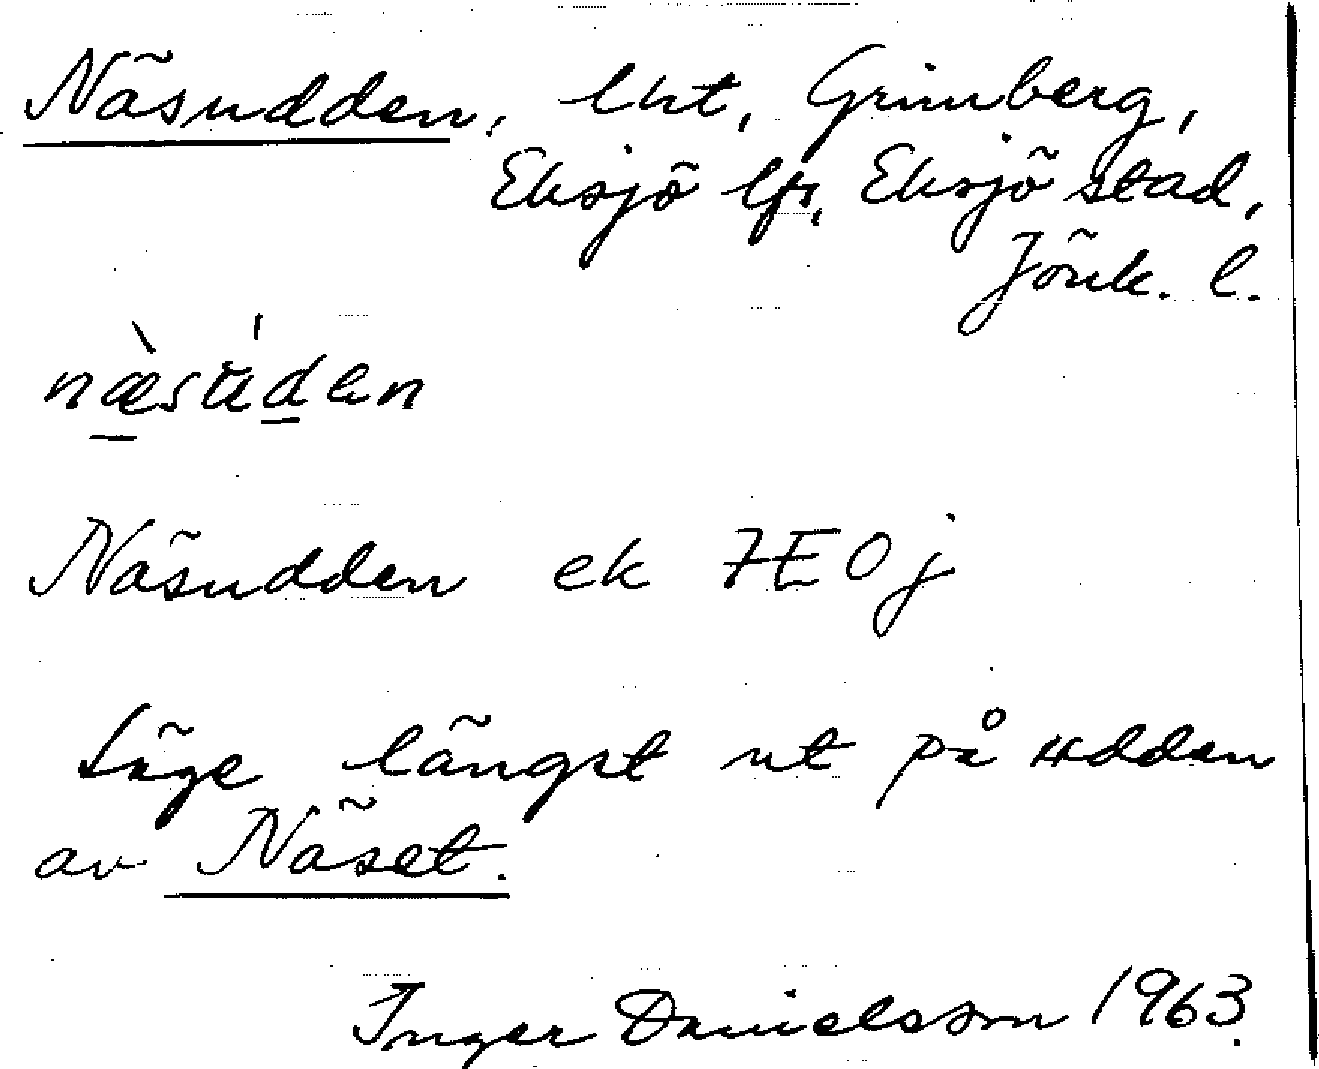 Näsudden, lht, Grimberg,
Eksjö lfs, Eksjö stad,
Jönk. l.
Näsudden ek 7E0j
Läge längst ut på udden
av Näset.
Inger Danielsson 1963.